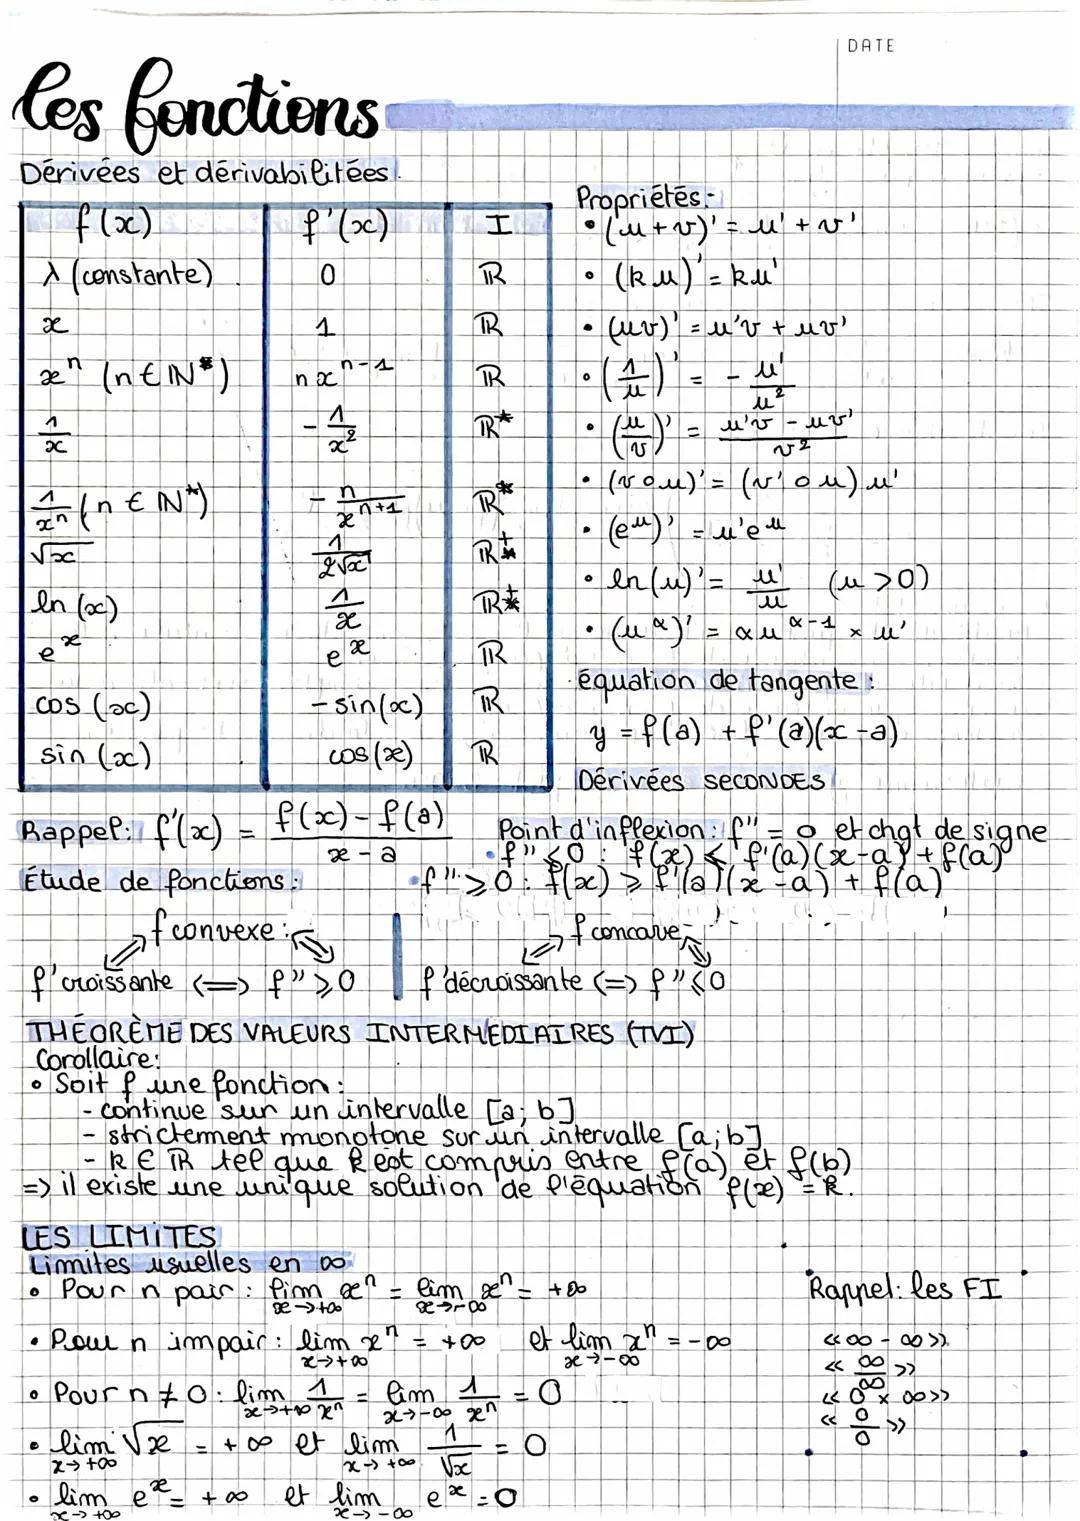 DATE
les fonctions
Dérivées et dérivabilitées.
f(x) f'(x) I
λ (constante) 0 ℝ
x 1 ℝ
xⁿ (n ∈ ℕ*) nxⁿ⁻¹ ℝ
1/x -1/x² ℝ*
1/xⁿ (n ∈ ℕ*) -n/xⁿ⁺¹ ℝ*
√x 1/(2√x) ℝ⁺*
ln(x) 1/x ℝ⁺*
eˣ eˣ ℝ
cos(x) -sin(x) ℝ
sin(x) cos(x) ℝ
Propriétés:
• (u+v)' = u' + v'
• (ku)' = ku'
• (uv)' = u'v + uv'
• (1/u)' = - u'/u²
• (u/v)' = (u'v - uv')/v²
• (v∘u)' = (v'∘u) u'
• (eᵘ)' = u'eᵘ
• ln(u)' = u'/u (u>0)
• (u^α)' = αu^(α-1) × u'
équation de tangente :
y = f(a) + f'(a)(x-a)
Dérivées SECONDES
Rappel: f'(x) = (f(x) - f(a))/(x - a)
Point d'inflexion: f'' = 0 et chgt de signe
• f'' ≤ 0 : f(x) ≤ f'(a)(x-a) + f(a)
• f'' ≥ 0 : f(x) ≥ f'(a)(x-a) + f(a)
Étude de fonctions :
f convexe :
f' croissante <=> f'' ≥ 0
f concave :
f' décroissante <=> f'' ≤ 0
THÉORÈME DES VALEURS INTERMEDIAIRES (TVI)
Corollaire:
• Soit f une fonction :
- continue sur un intervalle [a;b]
- strictement monotone sur un intervalle [a;b]
- k ∈ ℝ tel que k est compris entre f(a) et f(b)
=> il existe une unique solution de l'équation f(x) = k.
LES LIMITES
Limites usuelles en ∞
• Pour n pair : lim x→+∞ xⁿ = lim x→-∞ xⁿ = +∞
• Pour n impair : lim x→+∞ xⁿ = +∞ et lim x→-∞ xⁿ = -∞
• Pour n ≠ 0 : lim x→+∞ 1/xⁿ = lim x→-∞ 1/xⁿ = 0
• lim x→+∞ √x = +∞ et lim x→+∞ 1/√x = 0
• lim x→+∞ eˣ = +∞ et lim x→-∞ eˣ = 0
Rappel: les FI
«∞ - ∞»
«∞/∞»
«0 × ∞»
«0/0»